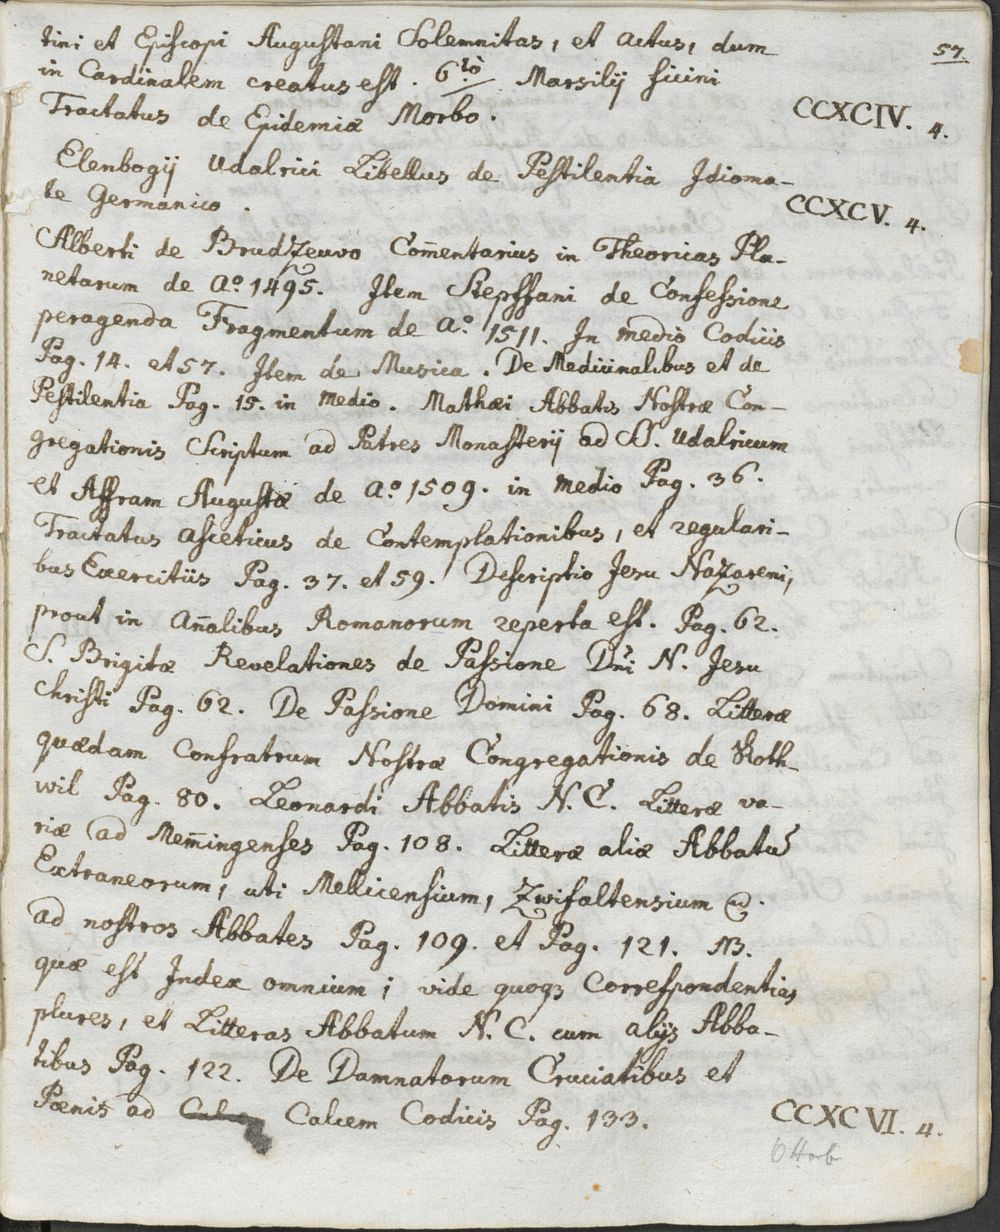 57.
tini et Episcopi Augustani Solemnitas, et actus, dum
in Cardinalem creatus est. 6tò Marsilij ficini
Tractatus de Epidemiæ Morbo.
CCXCIV. 4.
Elenbogij Udalrici Libellus de Pestilentia Idioma-
te Germanico.
CCXCV. 4.
Alberti de Brudzeuvo Com̄entarius in Theoricas Pla-
netarum de Aº. 1495. Item Stepffani de Confessione
peragenda Fragmentum de Aº. 1511. In medio Codicis
Pag. 14. et 57. Item de Musica. De Medicinalibus et de
Pestilentia Pag. 15. in medio. Mathæi Abbatis Nostræ Con-
gregationis Scriptum ad Patres Monasterij ad SS. Udalricum
et Affram Augustæ de Aº. 1509. in medio Pag. 36.
Tractatus asceticus de Contemplationibus, et regulari-
bus Exercitiis Pag. 37. et 59. Descriptio Jesu Nazareni,
prout in An̄alibus Romanorum reperta est. Pag. 62.
S. Brigitæ Revelationes de Passione Dn̄i N. Jesu
Christi Pag. 62. De Passione Domini Pag. 68. Litteræ
quædam Confratrum Nostræ Congregationis de Roth-
wil Pag. 80. Leonardi Abbatis N. C. Litteræ va-
riæ ad Mem̄ingenses Pag. 108. Litteræ aliæ Abbatū
Extraneorum, uti Mellicensium, Zwifaltensium &c.
ad nostros Abbates Pag. 109. et Pag. 121. NB.
quæ est Index omnium; vide quoqꝫ Correspondentias
plures, et Litteras Abbatum N. C. cum alijs Abba-
tibus Pag. 122. De Damnatorum Cruciatibus et
Pœnis ad Calcem Codicis Pag. 133.
CCXCVI. 4.